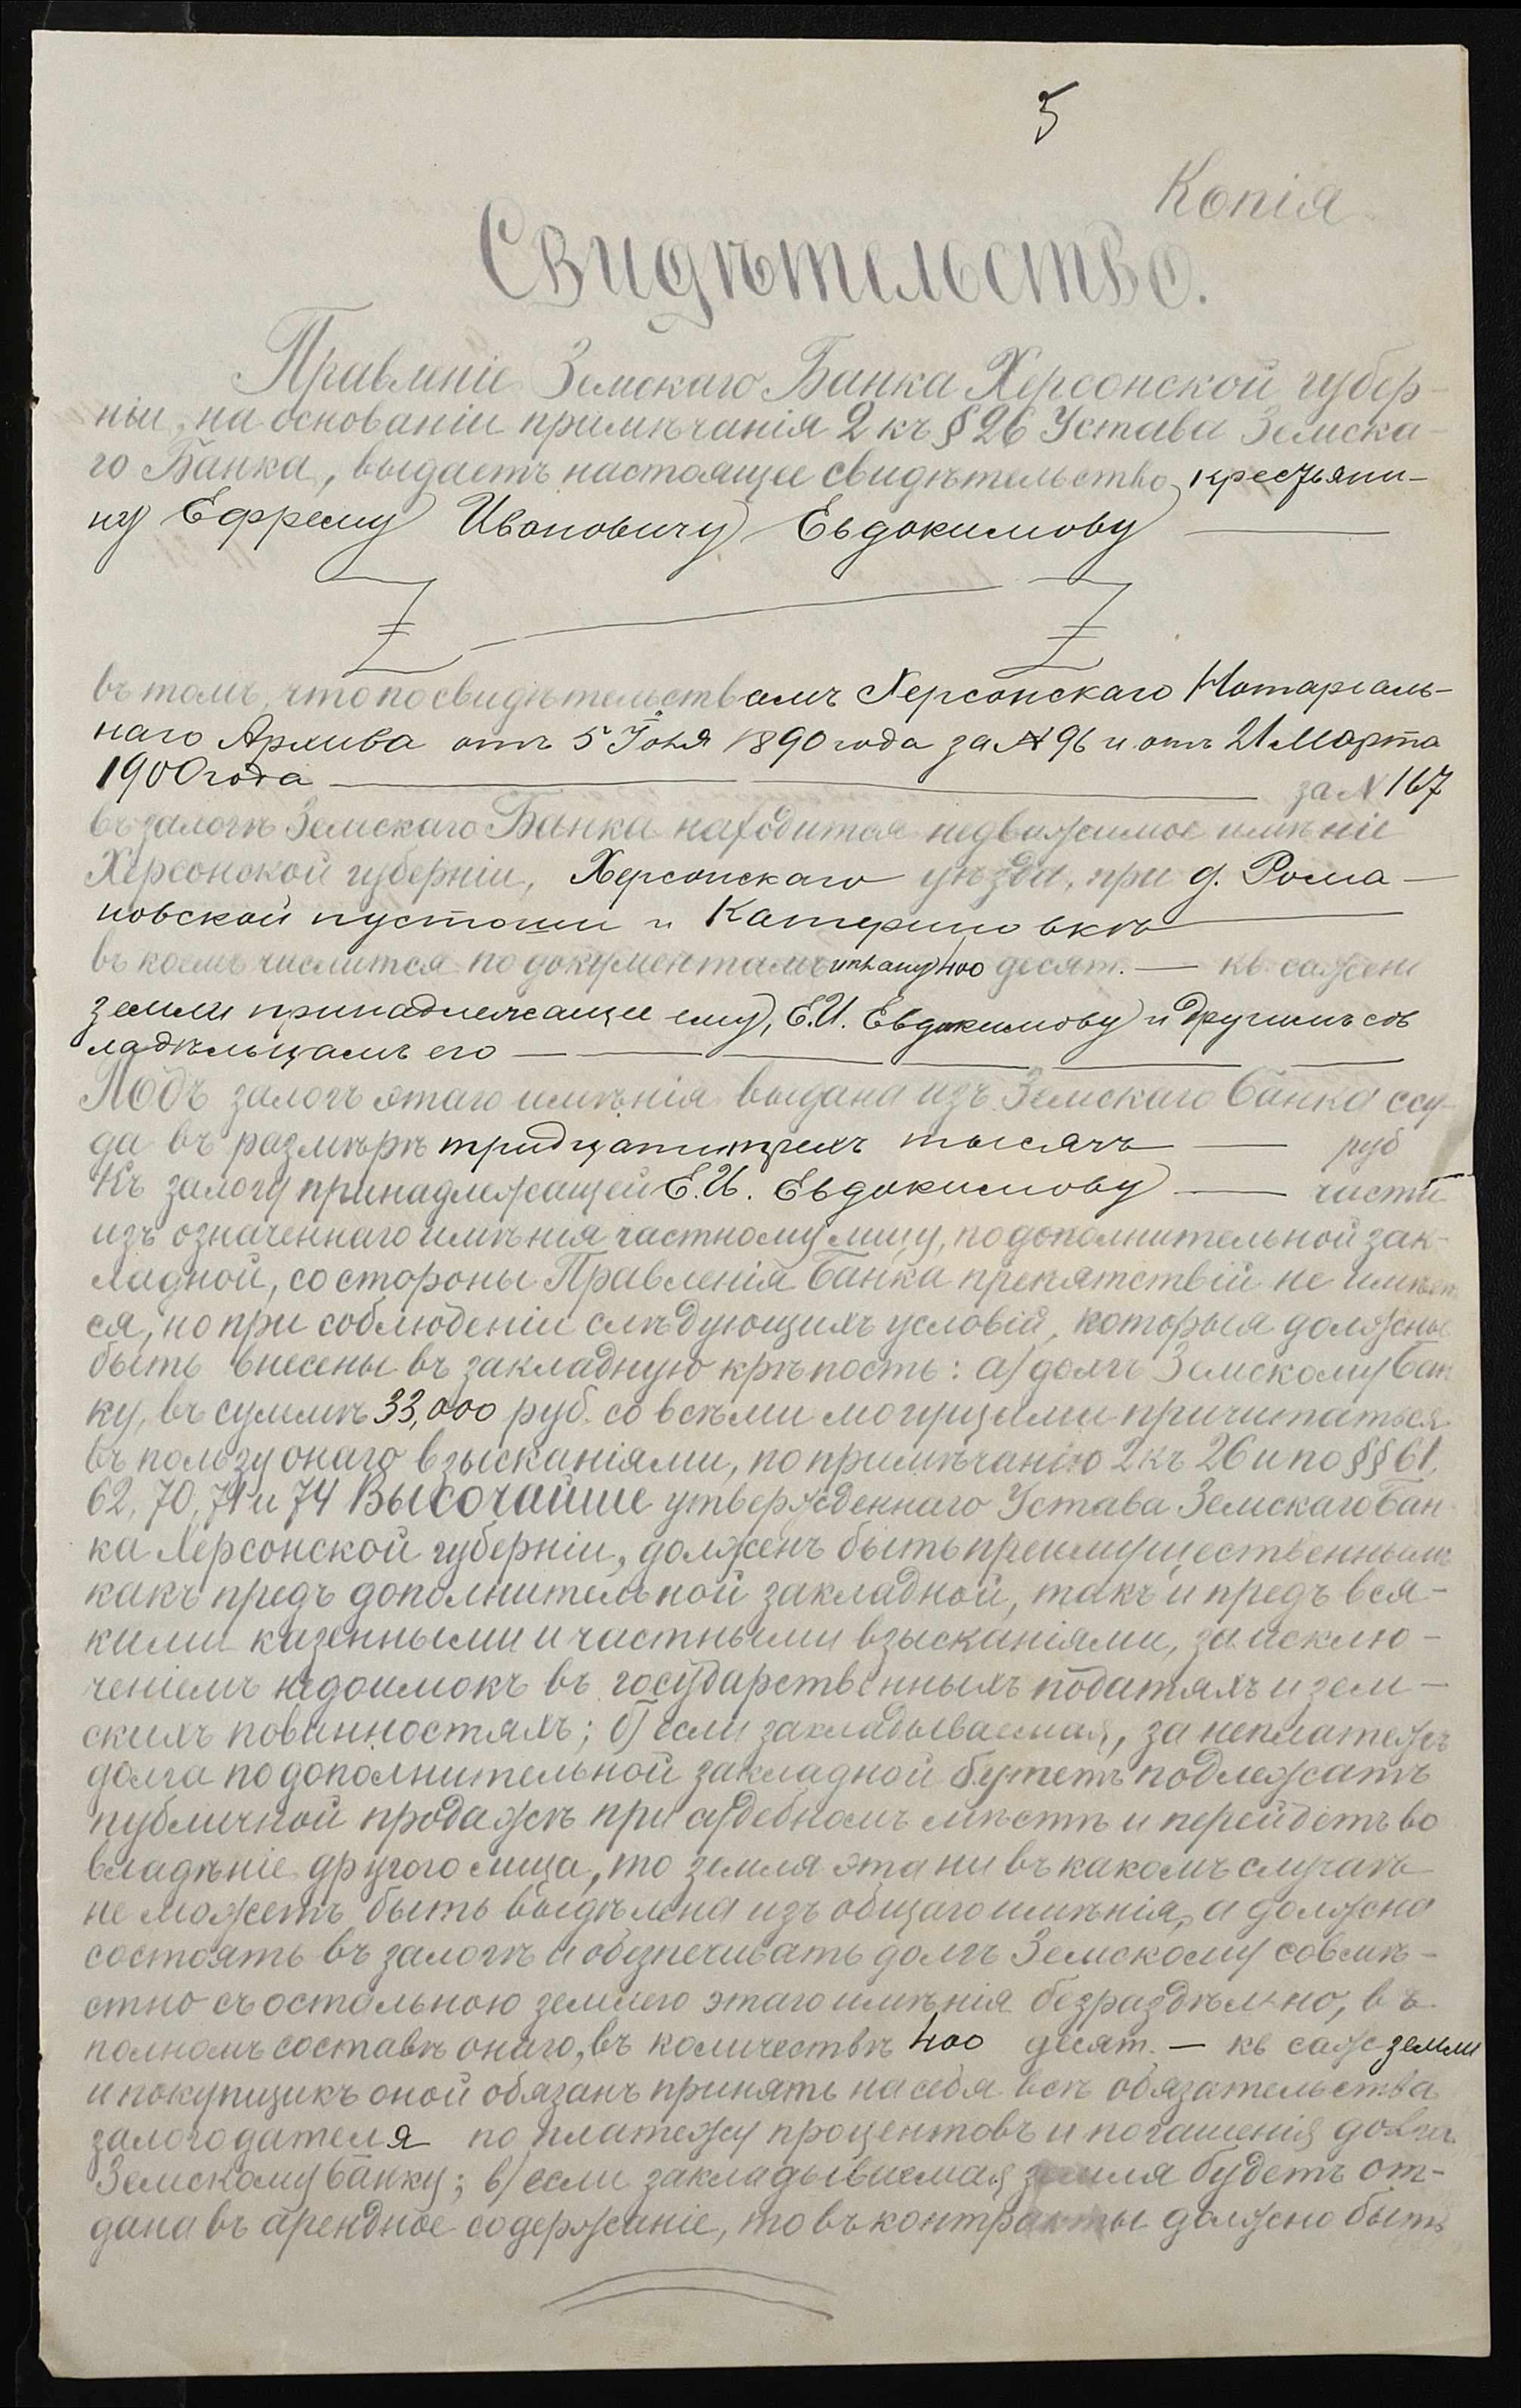 5
Копія
Свидѣтельство.
Правленіе Земскаго Банка Херсонской губер-
ніи, на основаніи примѣчанія 2 къ § 26 Устава Земска-
го Банка, выдаетъ настоящее свидѣтельство крестьяни-
ну Ефрему Ивановичу Евдокимову
въ томъ, что по свидѣтельствамъ Херсонскаго Нотаріаль-
наго Архива отъ 5 Іюня 1890 года за № 96 и отъ 21 Марта
1900 года за № 167
въ залогѣ Земскаго Банка находится недвижимое имѣніе
Херсонской губерніи, Херсонскаго уѣзда, при д. Рома-
новской пустоши и Катериновкѣ
въ коемъ числится по документамъ и плану 400 десят. — кв. сажен
земли принадлежащее ему, Е.И. Евдокимову и другимъ сов
ладѣльцамъ его
Подъ залогъ этаго имѣнія выдана изъ Земскаго банка ссу-
да въ размѣрѣ тридцати трехъ тысячъ — руб
Къ залогу принадлежащей Е.И. Евдокимову — части
изъ означеннаго имѣнія частному лицу, по дополнительной зак-
ладной, со стороны Правленія банка препятствій не имѣет
ся, но при соблюденіи слѣдующихъ условій, которыя должны
быть внесены въ закладную крѣпость: а) долгъ Земскому Бан
ку, въ суммѣ 33,000 руб. со всѣми могущими причитаться
въ пользу онаго взысканіями, по примѣчанію 2 къ 26 и по §§ 61,
62, 70, 71 и 74 Высочайше утвержденнаго Устава Земскаго Бан
ка Херсонской губерніи, долженъ быть преимущественнымъ
какъ предъ дополнительной закладной, такъ и предъ вся-
кими казенными и частными взысканіями, за исклю-
ченіемъ недоимокъ въ государственныхъ податяхъ и зем-
скихъ повинностяхъ; б) если закладываемая, за неплатежъ
долга по дополнительной закладной будетъ подлежать
публичной продажѣ при судебномъ мѣстѣ и перейдетъ во
владѣніе другого лица, то земля эта ни въ какомъ случаѣ
не можетъ быть выдѣлена изъ общаго имѣнія, а должна
состоять въ залогѣ и обезпечивать долгъ Земскому совмѣ-
стно съ остальною землею этаго имѣнія безраздѣльно, въ
полномъ составѣ онаго, въ количествѣ 400 десят. — кв саж земли
и покупщикъ оной обязанъ принять на себя всѣ обязательства
залогодателя по платежу процентовъ и погашенія долга
Земскому банку; в) если закладываемая земля будетъ от-
дана въ арендное содержаніе, то въ контракты должно быть